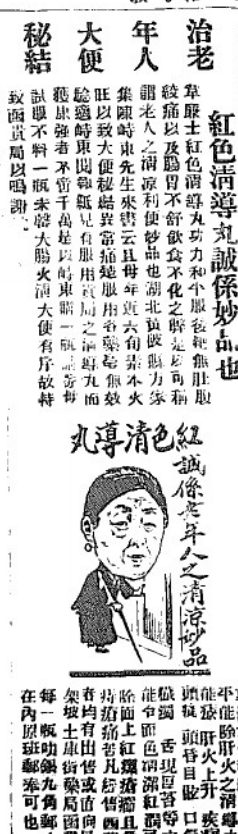 治老年人大便秘結
紅色清導丸誠係妙品也
韋廉士紅色清導丸功力和平服後絕無肚腹
絞痛以及腸胃不舒飲食不化之弊是以可稱
謂老人之清涼利便妙品也湖北黃陂縣力家
集陳峙東先生來書云且母年近六旬素本火
旺以致大便秘結異常痛楚服用各藥毫無效
驗適峙東閱報紙見有服用貴局之清導丸而
獲康強者不啻千萬是以峙東購一瓶請吾母
試服不料一瓶未罄大腸火清大便有序故特
致函貴局以鳴謝
紅色清導丸
誠係老年人之清涼妙品
平能除肝火之清
能療肝火上升疾
頭痕頭昏目眩口
穢濁舌現厚苔等
能令面色清潔紅潤
除面上紅擢瘡瘤且
痔瘡痛苦凡經售西
者均有出售或直向
架坡土庫街藥局函
每一瓶叻銀九角郵
在內原班郵奉可也